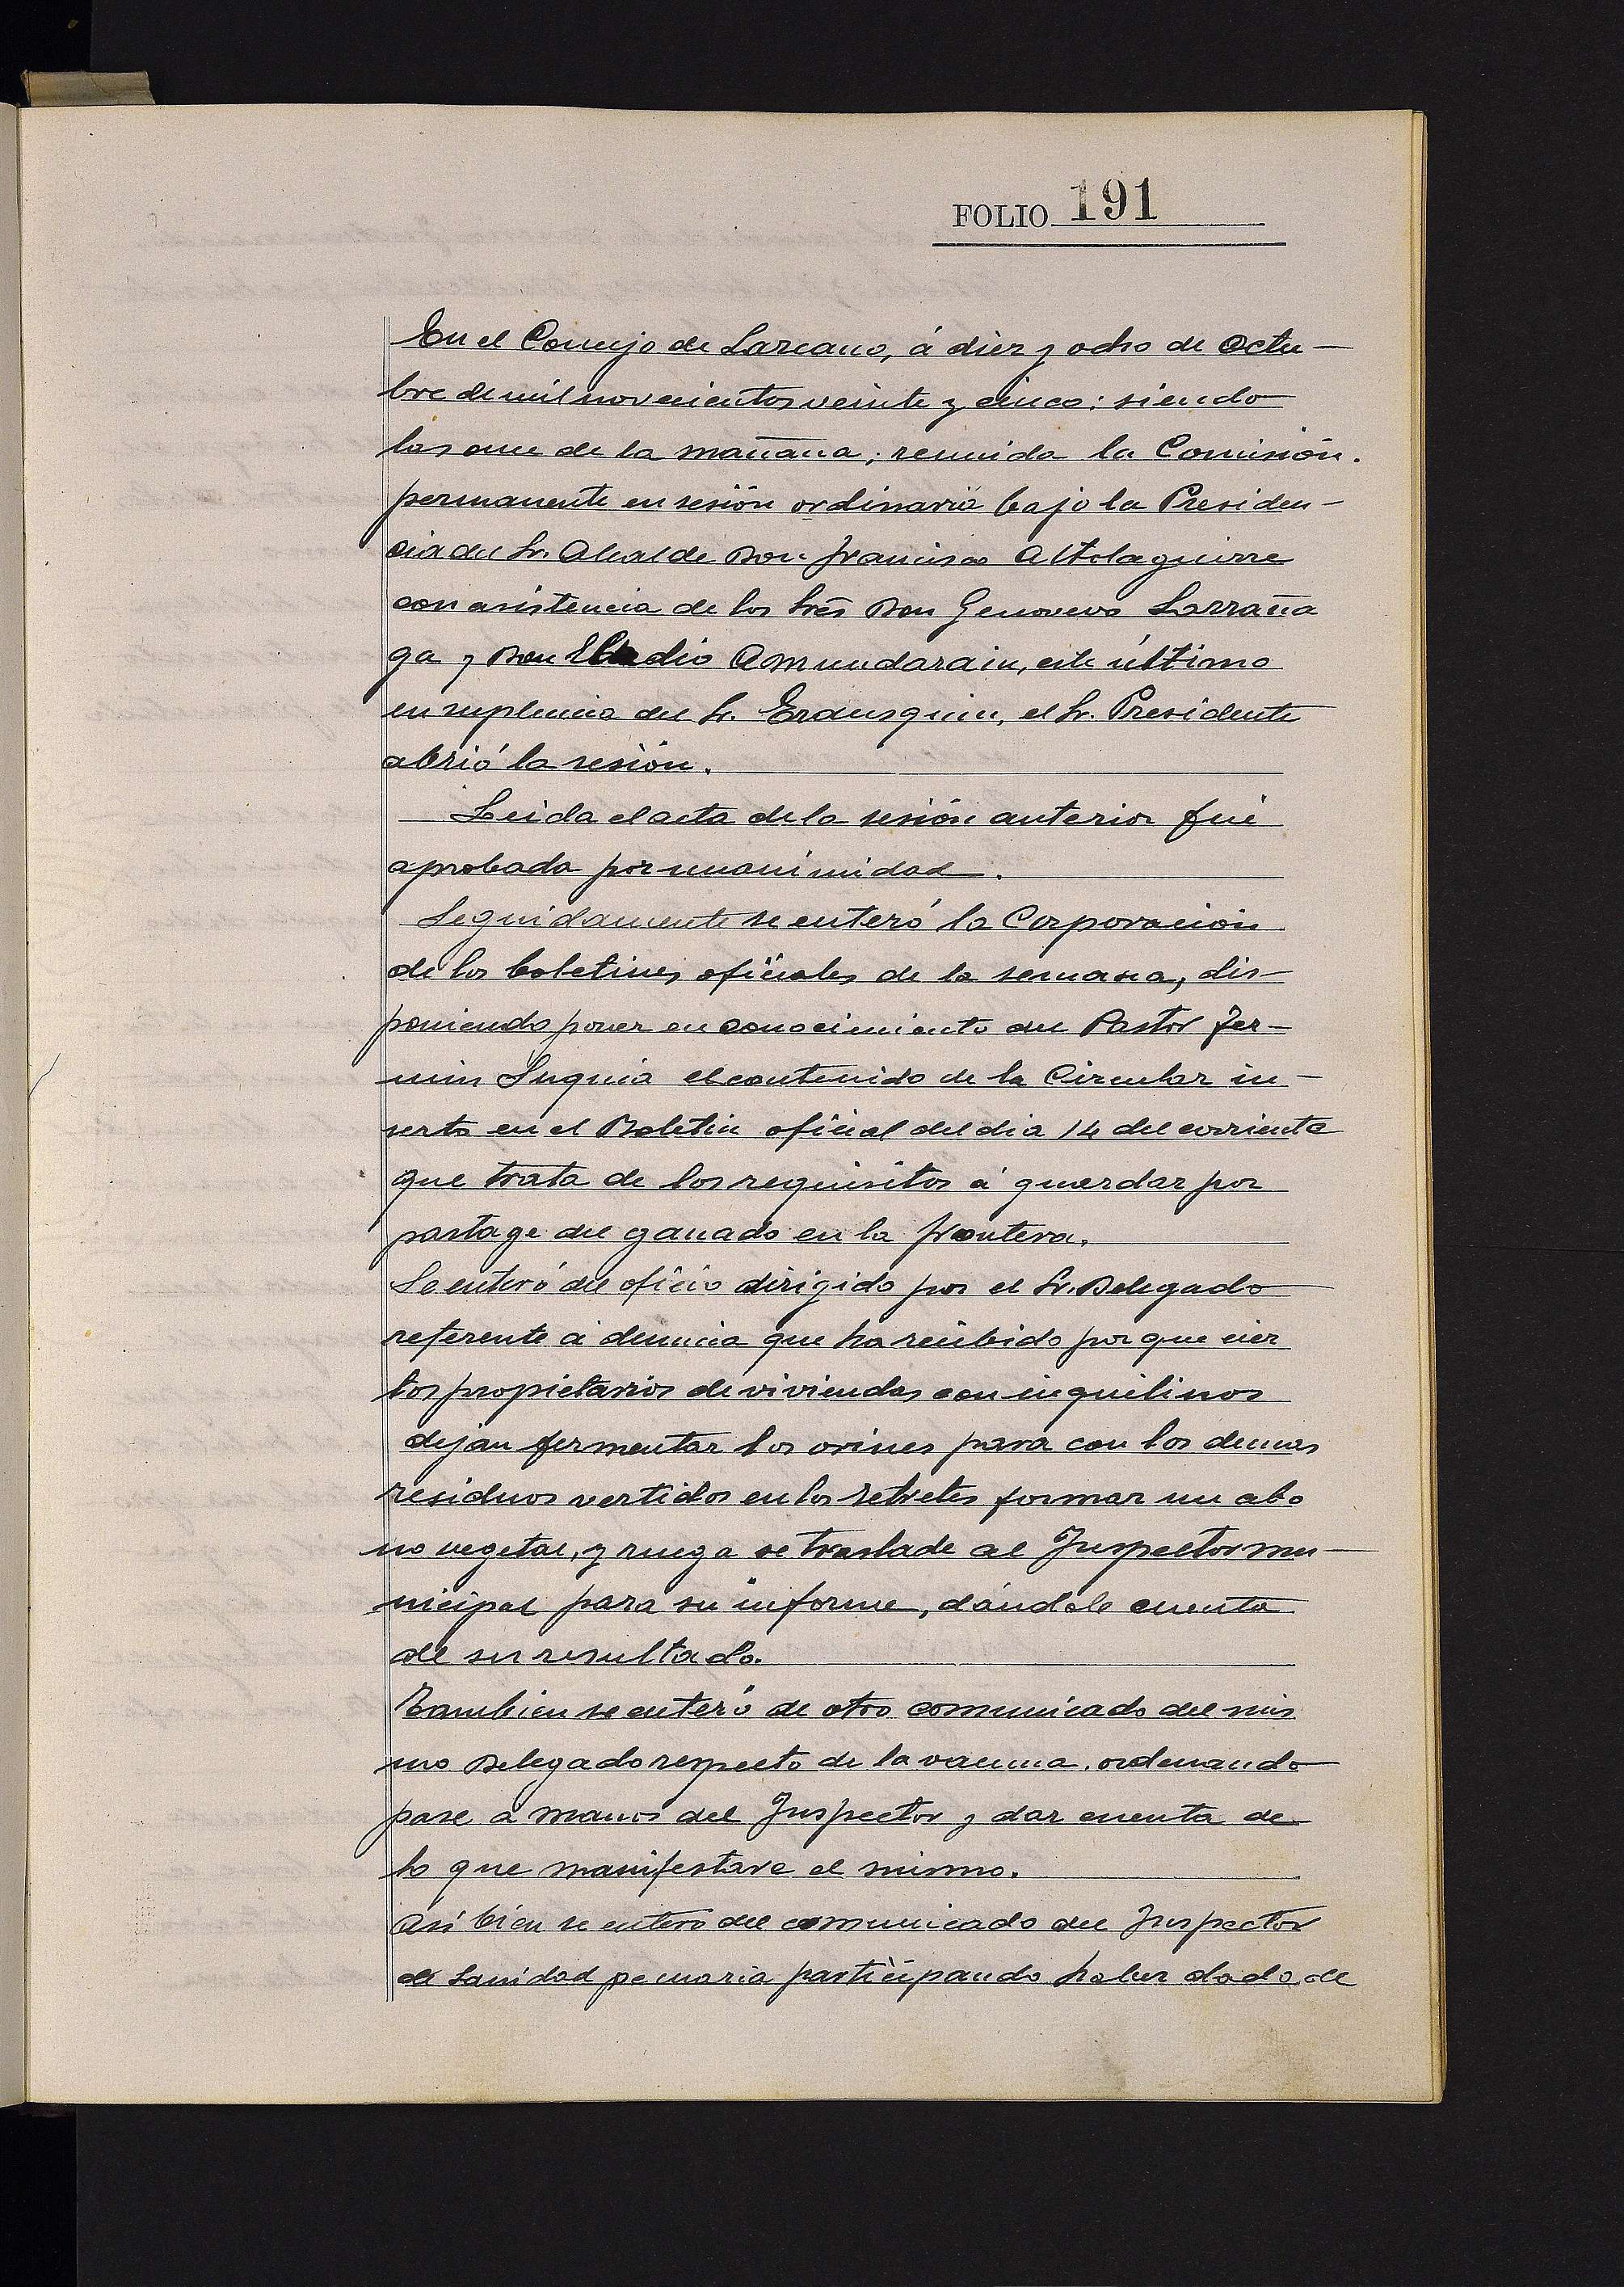 FOLIO 191
En el Concejo de Lazcano, á diez y ocho de Octu-
bre de mil novecientos veinte y cinco: siendo
las once de la mañana; reunida la Comisión.
permanente en sesión ordinaria bajo la Presiden-
cia del Sr. Alcalde Don Francisco Altolaguirre
con asistencia de los Srēs Don Genovevo Larraña
ga y Don Eladio Amundarain, este último
en suplencia del Sr. Erausquin, el Sr. Presidente
abrió la sesión.
Leida el acta de la sesión anterior fué
aprobada por unanimidad.
Seguidamente se enteró la Corporación
de los boletines oficiales de la semana, dis-
poniendo poner en conocimiento del Pastor Fer-
min Suquia el contenido de la Circular in-
serta en el Boletin oficial del dia 14 del corriente
que trata de los requisitos á guardar por
pastage del ganado en la frontera.
Se enteró del oficio dirigido por el Sr. Delegado
referente á denuncia que ha recibido por que cier
tos propietarios de viviendas con inquilinos
dejan fermentar los orines para con los demas
residuos vertidos en los retretes formar un abo
no vegetal, y ruega se traslade al Inspector mu-
nicipal para su informe, dándole cuenta
de su resultado.
Tambien se enteró de otro comunicado del mis
mo Delegado respecto de la vacuna. ordenando
pase á manos del Inspector y dar cuenta de
lo que manifestare el mismo.
Así bien se entero del comunicado del Inspector
de Sanidad pecuaria participando haber dado de